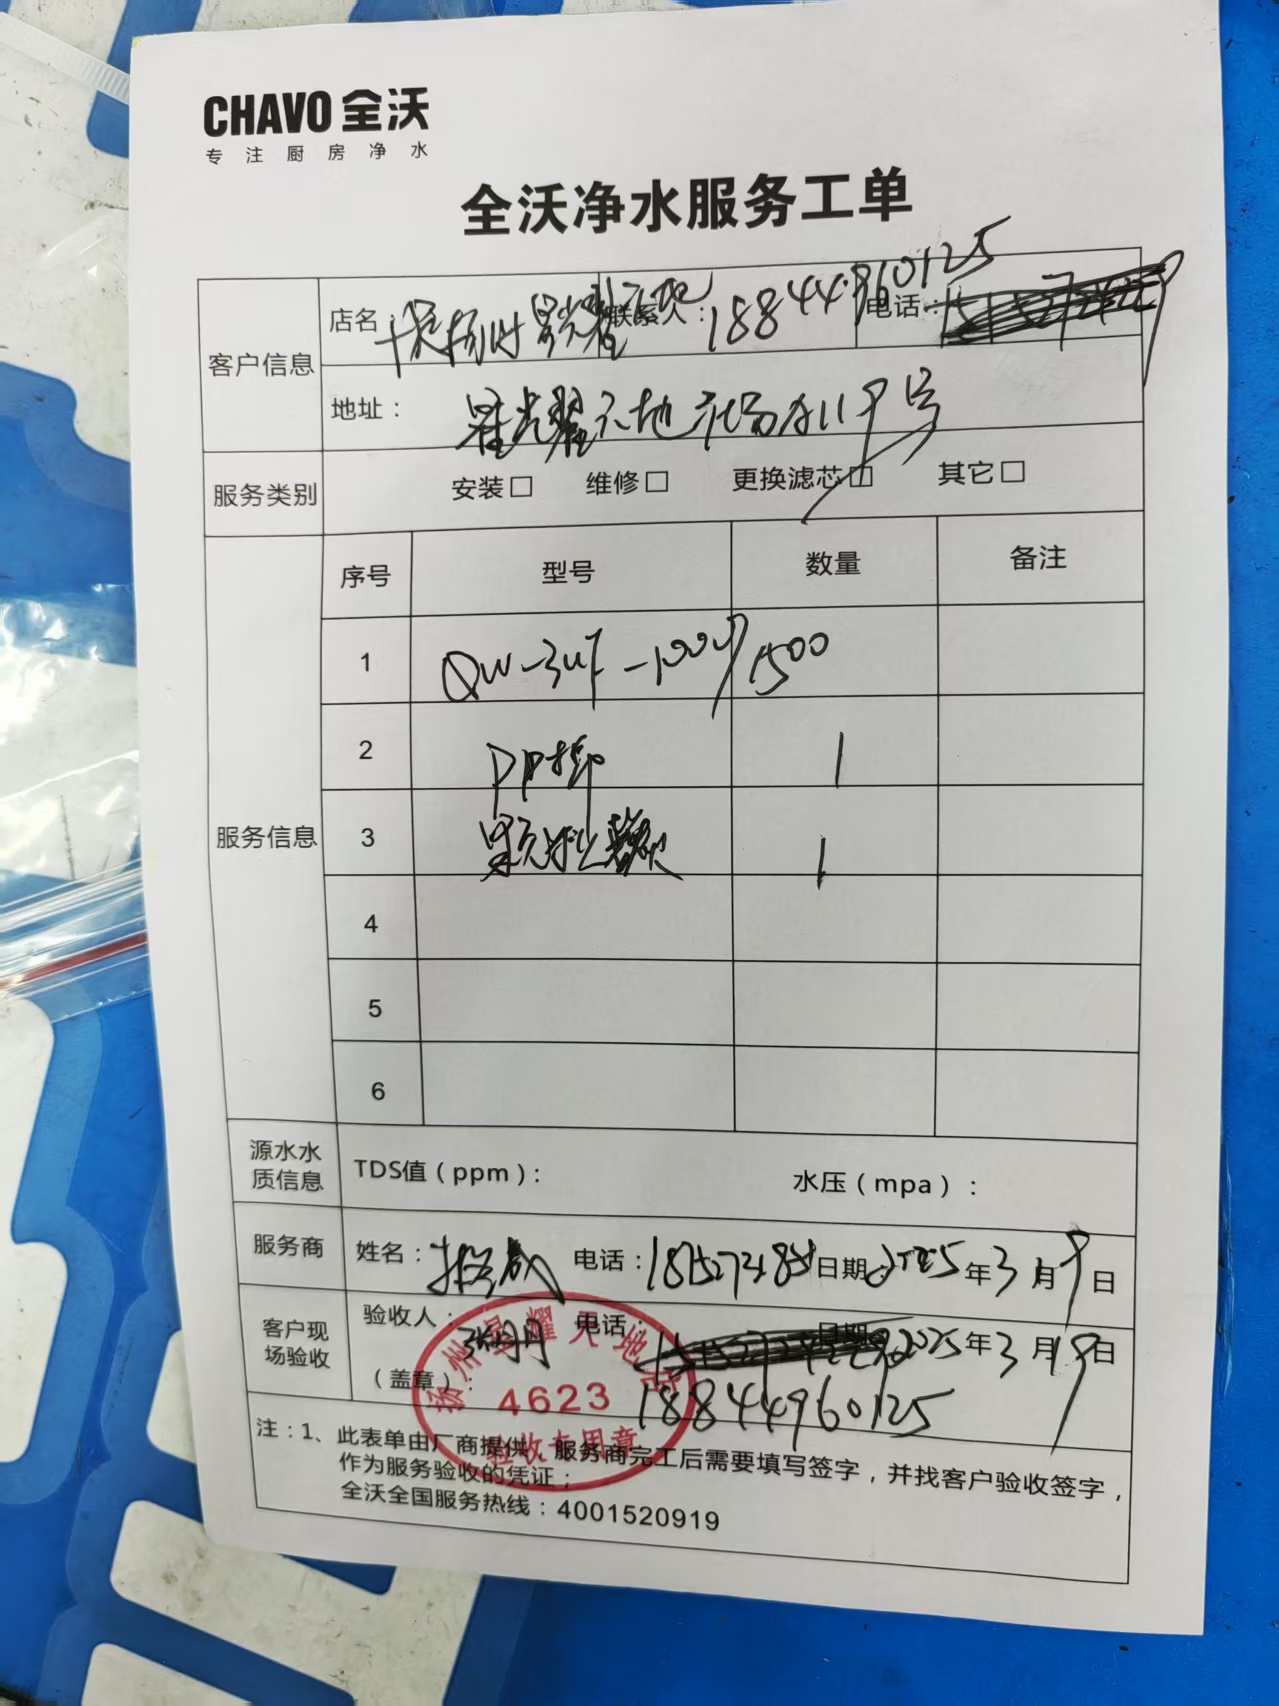 CHAVO 全沃
专注厨房净水
全沃净水服务工单
客户信息
店名： 联系人：18844960125 电话：
地址：星光耀天地 119号
服务类别 安装□ 维修□ 更换滤芯□ 其它□
服务信息
序号 型号 数量 备注
1 QW-3UF-1500
2 PP棉 1
3 1
4
5
6
源水水质信息 TDS值（ppm）： 水压（mpa）：
服务商 姓名： 电话： 日期：2025年3月19日
客户现场验收 验收人： 电话： 日期：2025年3月19日
（盖章）： 18844960125
扬州星耀天地店
4623
验收专用章
注：1、此表单由厂商提供，服务商完工后需要填写签字，并找客户验收签字，
作为服务验收的凭证；
全沃全国服务热线：4001520919